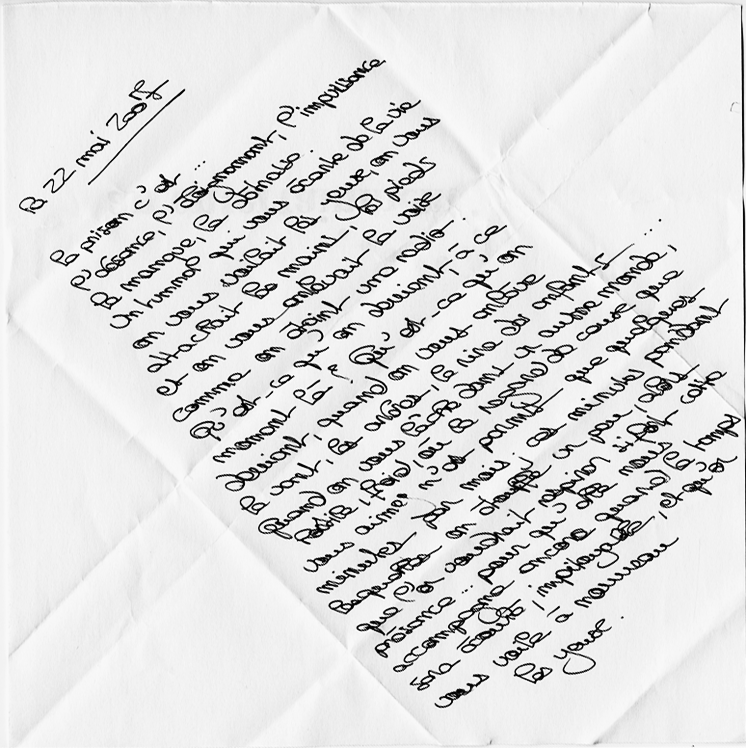 Le 22 mai
La prison c'est ...
l'absence, l'éloignement, l'impuissance
Le manque, la détresse.
Un tunnel qui vous écarte de la vie
on vous voilait les yeux, on vous
attachait les mains, les pieds
et on vous enlevait la voix
comme on éteint une radio.
Qu'est-ce qu'on devient, à ce
moment là ? Qu'est-ce qu'on
devient, quand on vous enlève
le vent, les arbres, le rire des enfants ...
Quand on vous lâche dans un autre monde,
hostile, froid où le regard de ceux que
vous aimez n'est permis que quelques
minutes par mois ; ces minutes pendant
lesquelles on étouffe un peu, alors
que l'on voudrait respirer si fort cette
présence ... pour qu'elle nous
accompagne encore quand le temps
sera écoulé, impitoyable, et qu'on
vous voile à nouveau
les yeux.